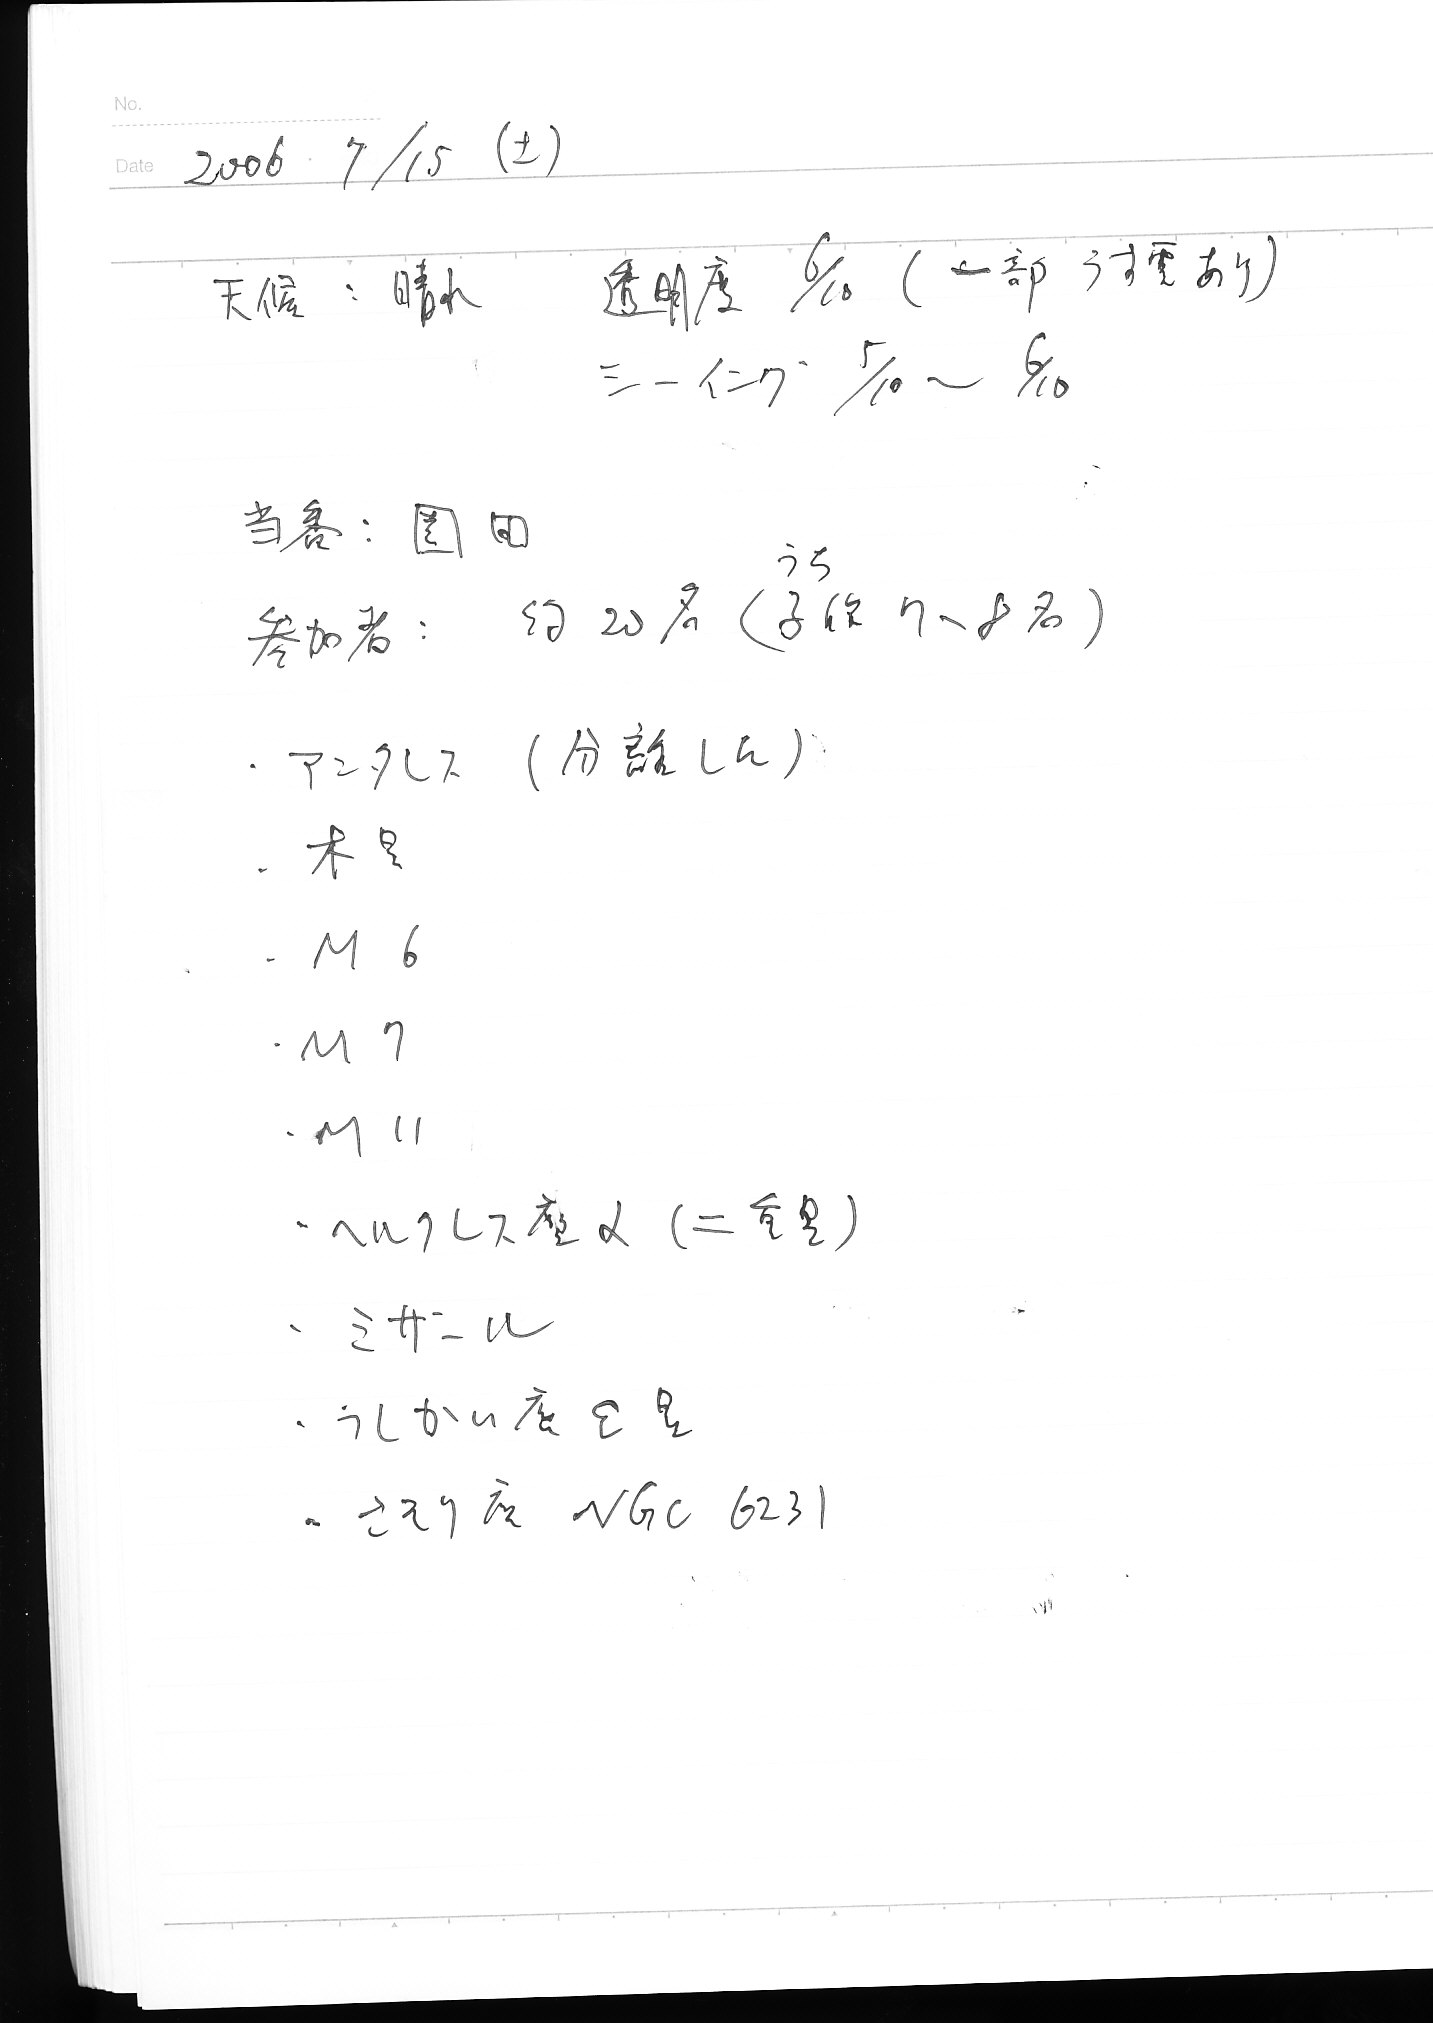 No.
Date 2006 7/15 (土)
天候:晴れ 透明度 6/10 (一部うす雲あり)
シーイング 5/10〜6/10
当番:園田
うち
参加者: 約20名(子供7、8名)
・アンタレス (分離した)
・木星
・M6
・M7
・M11
・ヘルクレス座α(二重星)
・ミザール
・うしかい座ε星
・さそり座 NGC 6231